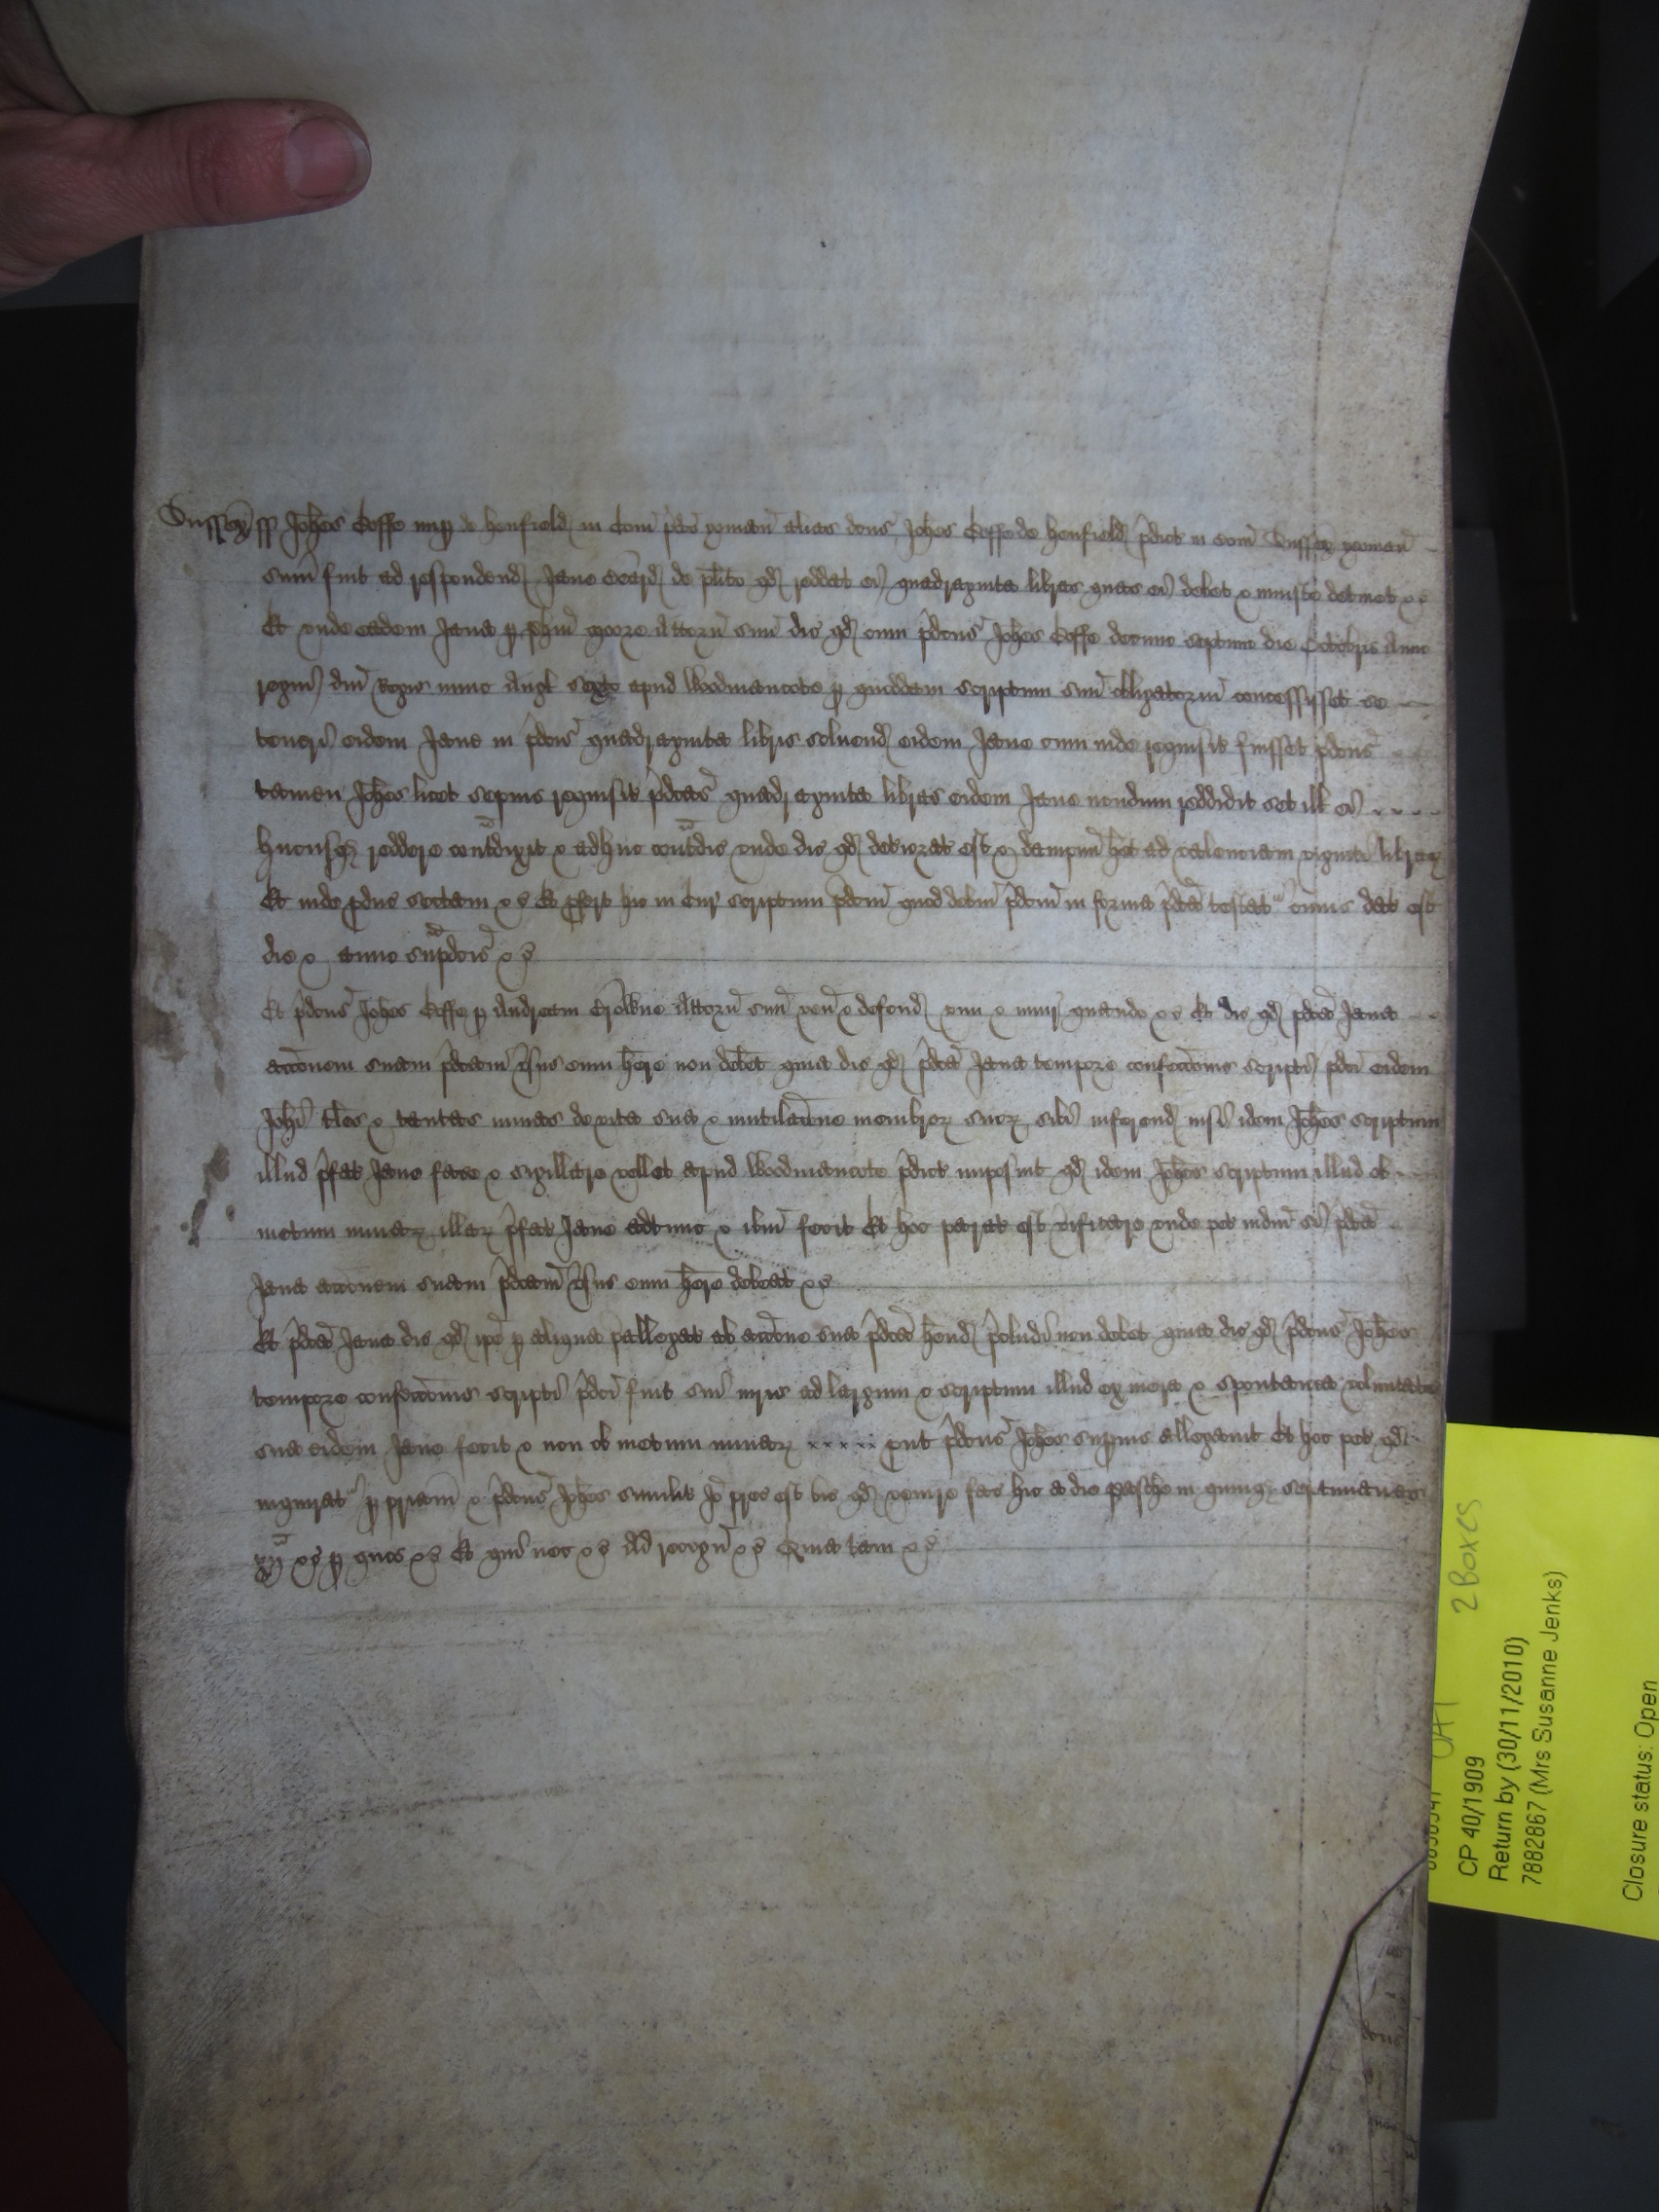 Sussex ss Johes Goffe nup de henfield in Com pdco yoman alias dcus Johes Goffe de henfeld pdict in Com Sussex yeoman
sum fuit ad respondend Jane de plito qd reddat ei quadraginta libras quas ei debet & iniuste detinet &c
Et unde eadem Jana p Johem Moore Attorn suu dic qd cum pdcus Johes Goffe decimo septimo die Octobris Anno
regni dni Regis nunc Angl sexto apud Woodmancote p quoddam scriptum suu obligatoriu concessisset se
teneri eidem Jane in pdcis quadraginta libris solvend eidem Jane cum inde requisit fuisset pdcus
tamen Johes licet sepius requisit pdcas quadraginta libras eidem Jane nondum reddidit set ill ei
hucusq reddere contdixit & adhuc contdic unde dic qd deteriorat est & dampnu het ad valenciam viginti librar
Et inde pduc sectam &c Et pfert hic in Cur scriptum pdcm quod debm pdcm in forma pdca testat cuius dat est
die & anno supdcis &c
Et pdcus Johes Goffe p Andream Attorn suu ven & defend vim & iniur quando &c Et dic qd pdca Jana
accoem suam pdcam vsus eum here non debet quia dic qd pdca Jana tempore confeccois scripti pdci eidem
Johi tles & tantas minas de vita sua & mutilacoe membror suor sibi inferend nisi idem Johes scriptum
illud pfat Jane facere & sigillare vellet apud Woodmancote pdict imposuit qd idem Johes scriptum illud ob
metum minar illar pfat Jane adtunc & ibm fecit Et hoc parat est vificare unde pet iudm si pdca
Jana accoem suam pdcam vsus eum here debeat &c
Et pdca Jana dic qd ipa p aliqua pallegat ab accoe sua pdca hend pcludi non debet quia dic qd pdcus Johes
tempore confeccois scripti pdci fuit sui iuris ad largum & scriptum illud ex mera & spontanea voluntate
sua eidem Jane fecit & non ob metum minar put pdcus Johes supius allegavit Et hoc pet qd
inquirat p priam & pdcus Johes similit Io prec est vic qd venire fac hic a die Pasche in quinq septimanas
xij &c p quos &c Et qui nec &c Ad recogn &c Quia tam &c
2 Boxes
CP 40/1909
Return by (30/11/2010)
7882867 (Mrs Susanne Jenks)
Closure status: Open